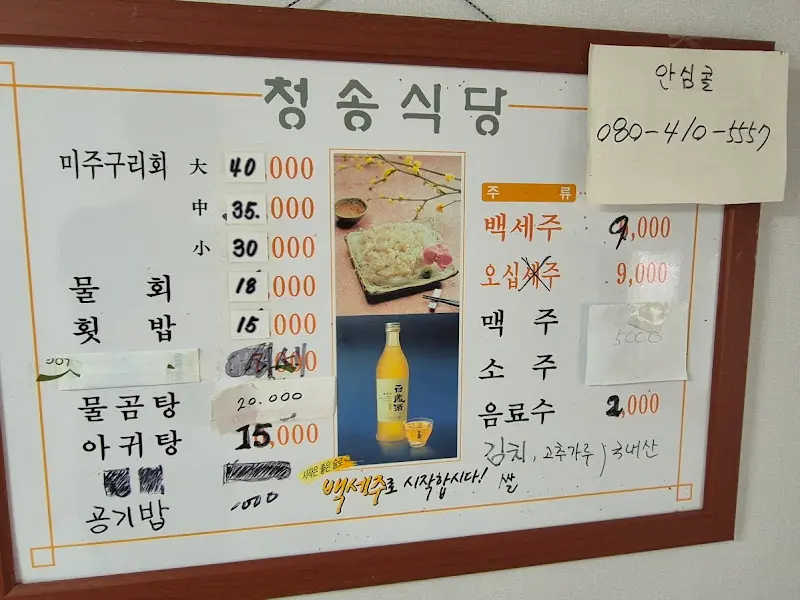 청송식당
미주구리회 大 40,000
中 35.000
小 30 000
물 회 18,000
횟 밥 15,000
물곰탕 20.000
아귀탕 15,000
공기밥 000
안심콜
080-410-5557
주 류
백세주 9,000
오십세주 9,000
맥 주
소 주 5000
음료수 2,000
김치, 고추가루, 국내산
쌀
백세주로 시작합시다!